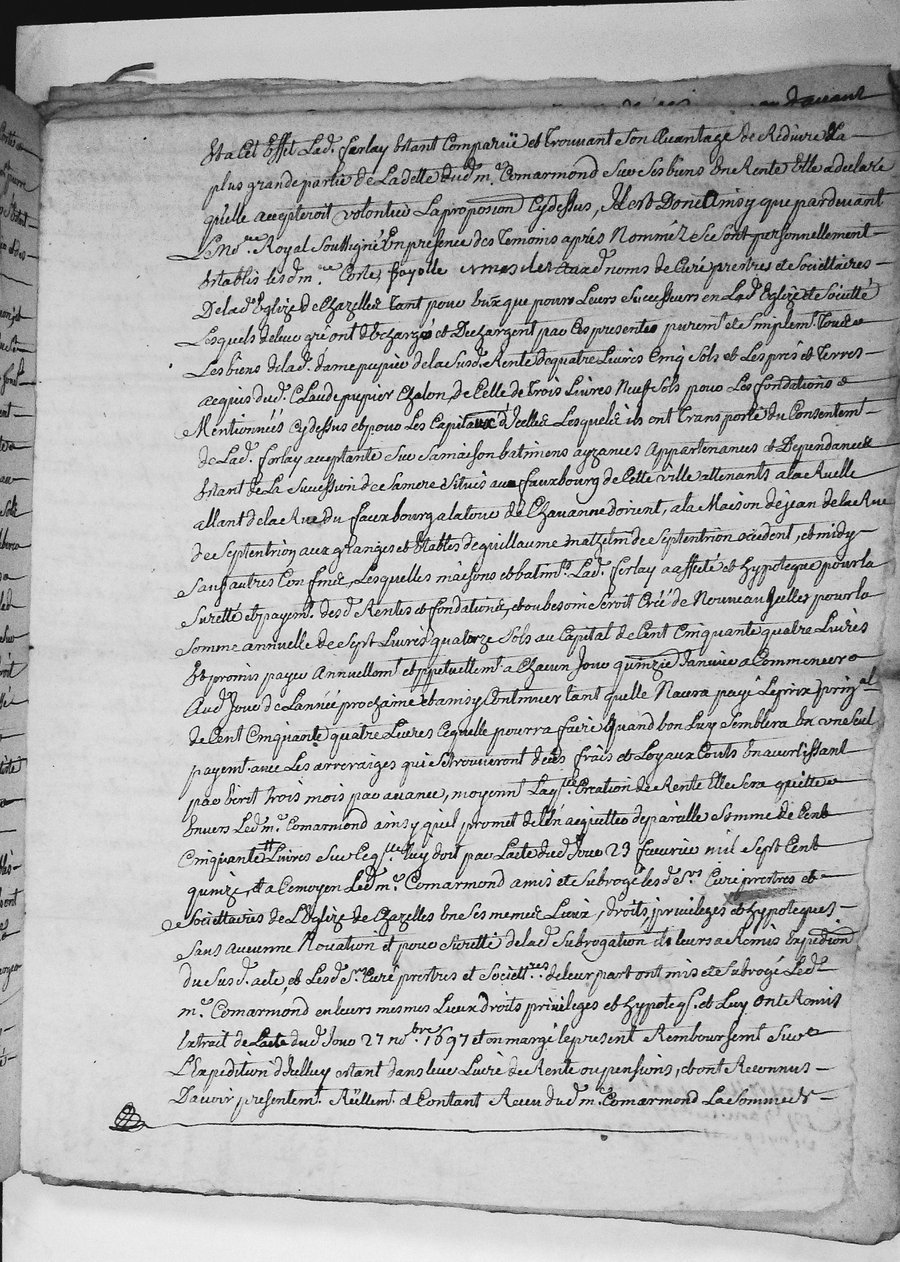 davant
Et a Cet Effet Lad. forlay Estant Comparüe et Trouvant Son avantage de Reduire La
plus grande partie de La dette dud. m.e Comarmond Sur Ses biens En Rente Elle a declaré
qu'elle accepteroit volontier La proposion Cy dessus, Il est Donc Ainsy que pardevant
Le No.re Royal Soussigné En presence des Temoins aprés Nommés Se Sont personnellement
Establis lesd. m.re Corte, fayolle aux d. noms de Curé prestres et Societtaires
De lad. Eglize de Chazelles tant pour Eux que pour Leurs Successeurs en Lad. Eglize et Societté
Lesquels de leur gré ont déchargé et Dechargent par Ces presentes purem.t et Simplem.t Tous
Les biens de lad. dame pupier de la Susd. Rente de quatre Livres Cinq Sols et Les prés et Terres
acquis dud. Claude pupier Chalon de Celle de Trois Livres Neuf Sols pour Les fondations
Mentionnées Cy dessus et pour Les Capitaux d'Icelles Lesquels ils ont Transporté du Consentem.t
de Lad. forlay acceptante Sur Sa maison batimens ayzances Appartenances et Dependances
Estant de La Succession de Sa mere Situés au fauxbourg de Cette ville attenants a la Ruelle
allant de la Rue du fauxbourg a la tour de Chavanne d'orient, a la Maison de jean de la Rue
de Septentrion aux granges et Etables de guillaume de Septentrion occident, et midy
Sauf autres Confines, Lesquelles maisons et batim.ts Lad. forlay a affecté et hypoteque pour la
Suretté et payem.t desd. Rentes et fondations, et ou besoin Seroit Créé de Nouveau Icelles pour la
Somme annuelle de Sept Livres quatorze Sols au Capital de Cent Cinquante quatre Livres
Et promis payer Annuellem.t et ppetuellem.t a Chacun Jour quinzie Janvier a Commencer
Aud. Jour de L'année prochaine et ainsy Continuer tant quelle N'aura payé Le prix prin.al
de Cent Cinquante quatre Livres Ce quelle pourra faire Quand bon Luy Semblera En un Seul
payem.t avec Les arreraiges qui Se trouveront deus frais et Loyaux Couts En avertissant
par Ecrit trois mois par avance, moyenn.t Laq.lle Création de Rente Elle Sera quitte
Envers Led. m.e Comarmond ainsy quil promet de l'En acquitter de pareille Somme de Cent
Cinquante Livres Sur Ceq.elle Luy doit par L'acte dud. Jour 23 fevrier mil Sept Cent
quinze, Et a Ce moyen Led. m.e Comarmond a mis et Subrogé lesd. S.rs Curé prestres et
Societtaires de L'Eglize de Chazelles En Ses memes Lieux, droits, privileges et hypoteques
Sans aucune Novation et pour Suretté de lad. Subrogation il leurs a Remis Expedion
du Susd. acte, et Lesd. S.rs Curé prestres et Societt.res de leur part ont mis et Subrogé Led.
m.e Comarmond en leurs mesmes Lieux Droits privileges et hypoteq.s et Luy ont Remis
Extrait de L'acte dud. Jour 27 no.bre 1697 et en marge le present Remboursem.t Sur
L'Expedition d'Icelluy estant dans leur Livre de Rente ou pensions, et ont Reconnus
D'avoir presentem.t Réellem.t et Contant Receu dud. m.e Comarmond La Somme de